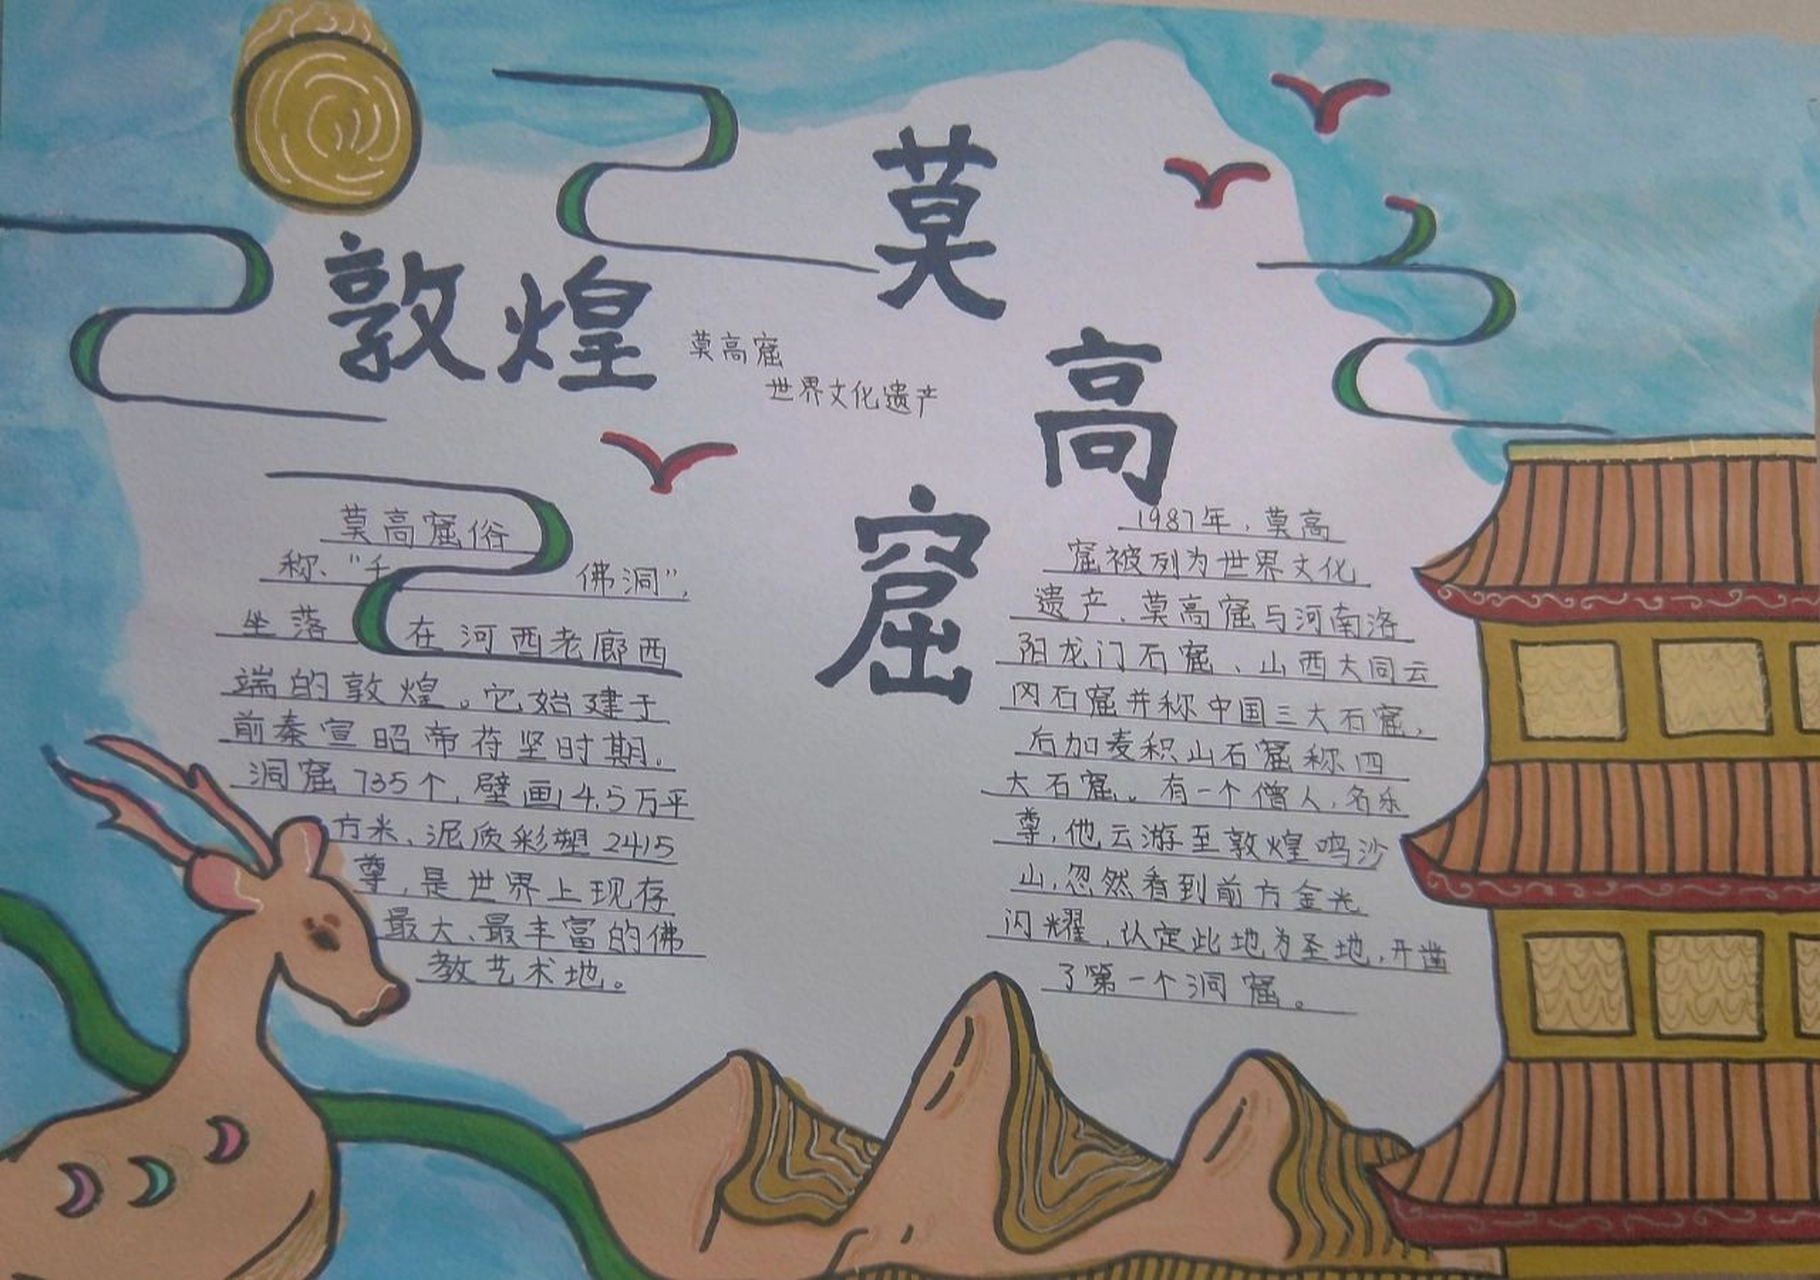 敦煌
莫
高
窟
莫高窟
世界文化遗产
莫高窟俗
称、"千佛洞",
坐落在河西老廊西
端的敦煌。它始建于
前秦宣昭帝苻坚时期。
洞窟735个,壁画14.5万平
方米、泥质彩塑2415
尊,是世界上现存
最大、最丰富的佛
教艺术地。
1987年,莫高
窟被列为世界文化
遗产,莫高窟与河南洛
阳龙门石窟、山西大同云
冈石窟并称中国三大石窟,
后加麦积山石窟称四
大石窟。有一个僧人,名乐
尊,他云游至敦煌鸣沙
山,忽然看到前方金光
闪耀,认定此地为圣地,开凿
了第一个洞窟。